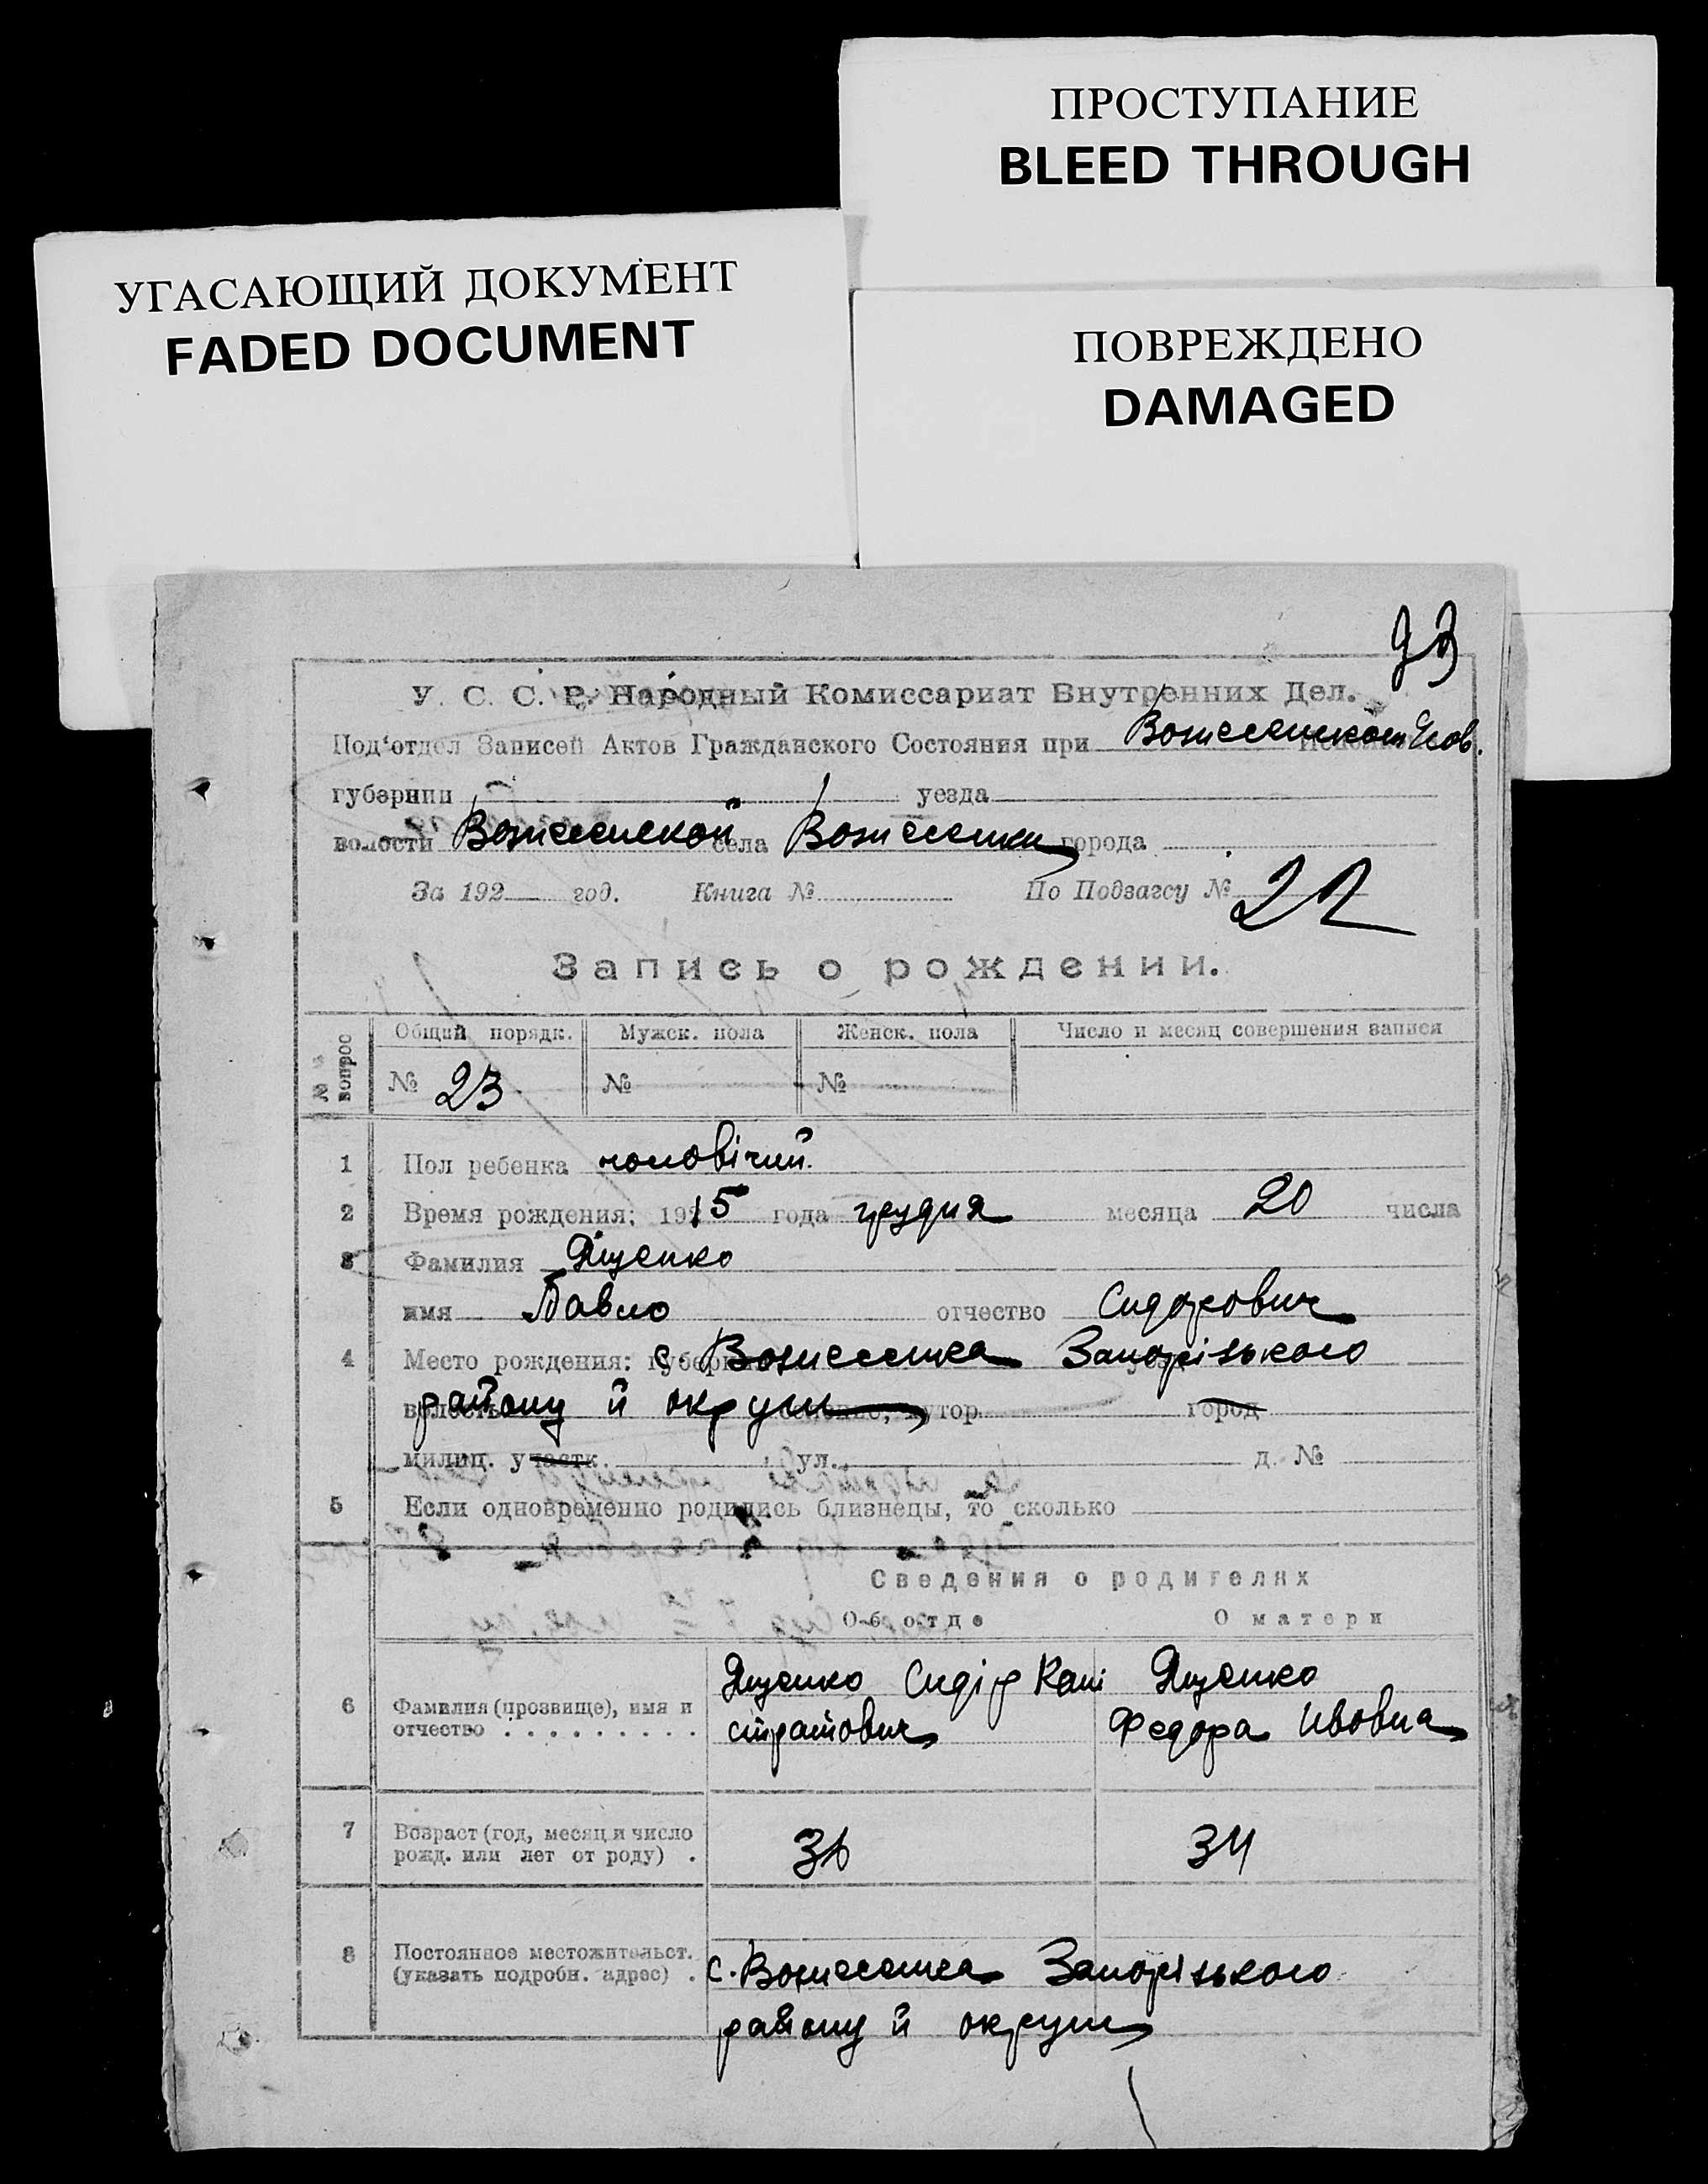 ПРОСТУПАНИЕ
BLEED THROUGH
УГАСАЮЩИЙ ДОКУМЕНТ
FADED DOCUMENT
ПОВРЕЖДЕНО
DAMAGED
У. С. С. Р. Народный Комиссариат Внутренних Дел.
Под'отдел Записей Актов Гражданского Состояния при
губернии уезда
волости Вознесенской села Вознесенки города
За 192 год. Книга № По Подзагсу № 22
Запись о рождении.
№ вопрос Общий порядк. Мужск. пола Женск. пола Число и месяц совершения записи
№ 23 № №
1 Пол ребенка чоловічий.
2 Время рождения: 1915 года грудня месяца 20 числа
3 Фамилия Ященко
имя Павло отчество Сидорович
4 Место рождения: губерн с. Вознесенка Запорізького
волость району й округи хутор город
милиц. участк. ул. д. №
5 Если одновременно родились близнецы, то сколько
Сведения о родителях
Об отце О матери
6 Фамилия (прозвище), имя и отчество . . . . . . . . . Ященко Сидір Калі Ященко
стратович Федора Івовна
7 Возраст (год, месяц и число рожд. или лет от роду) . 36 34
8 Постоянное местожительст. (указать подробн. адрес) . с. Вознесенка Запорізького
району й округи